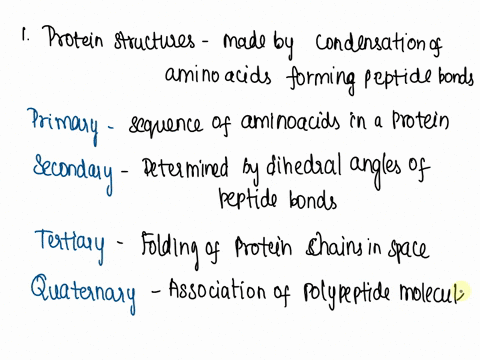 1. Protein structures - made by condensation of
amino acids forming peptide bonds
Primary - sequence of aminoacids in a protein
Secondary - Determined by dihedral angles of
peptide bonds
Tertiary - Folding of protein chains in space
Quaternary - Association of polypeptide molecul